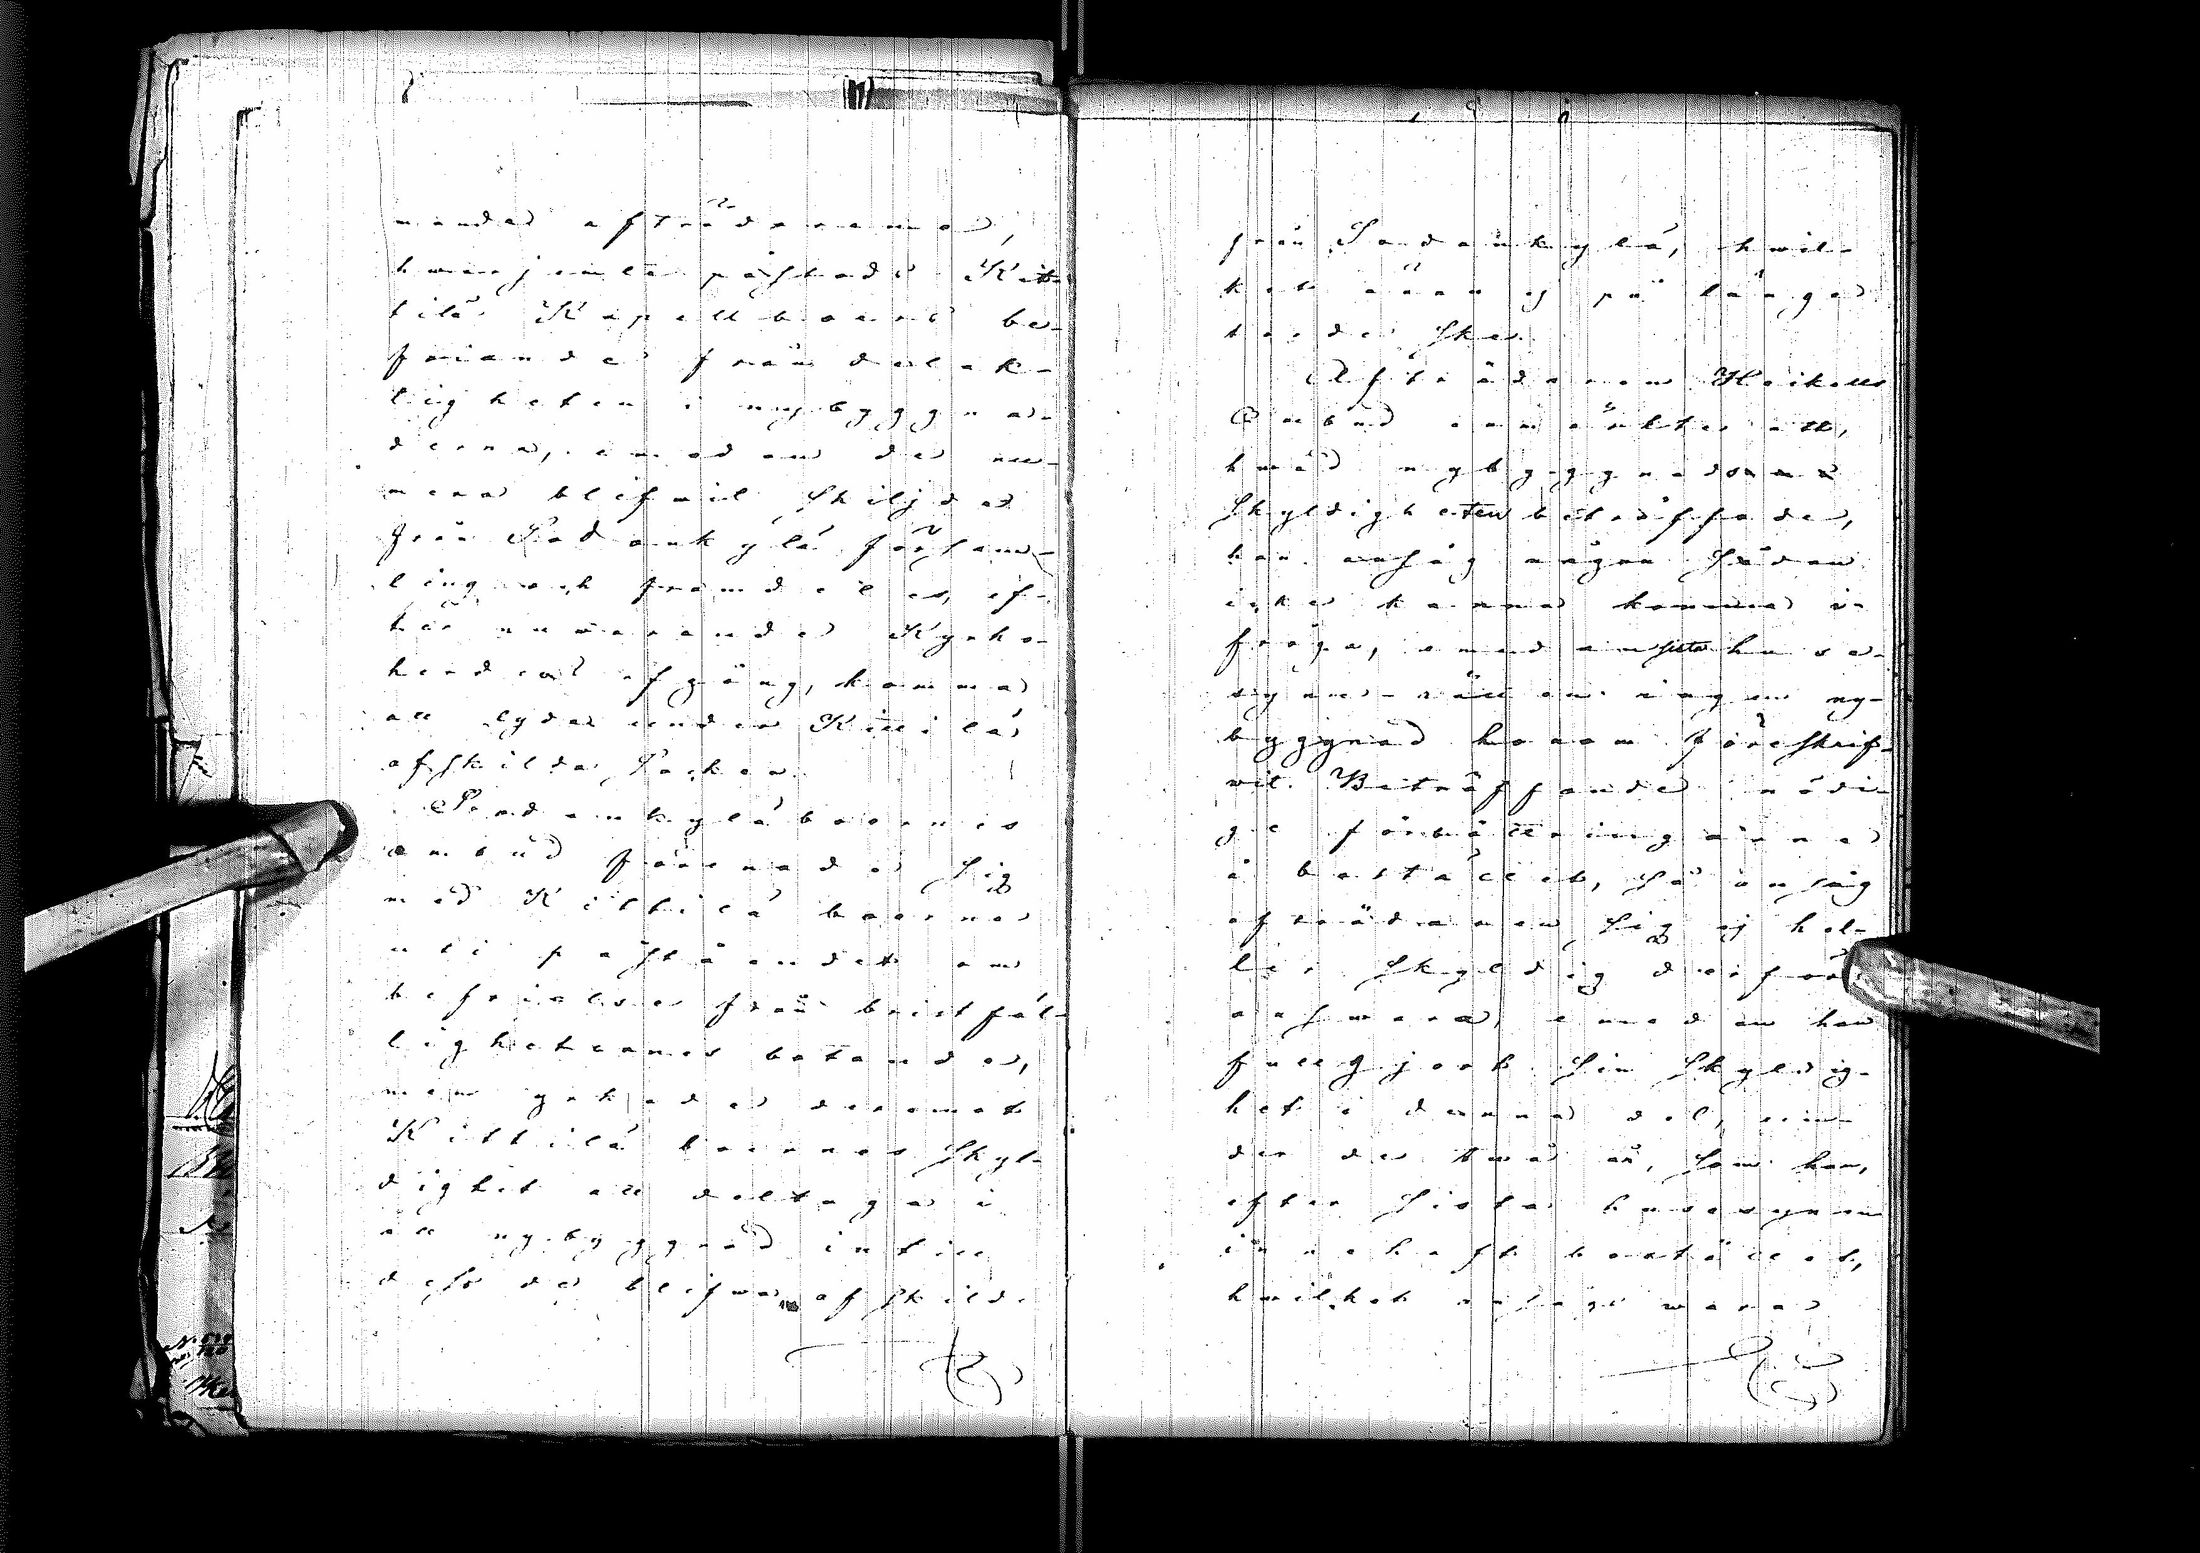 mande afträdarene,
hwarjemte påstode Kit-
tilä Kapellboerne be-
friande från delak-
tigheten i nybyggna-
derna, emedan de nu-
mera blifwit skiljde
från Sodankylä församl-
ling och framdeles, ef-
ter nuwarande Kyrko-
herdens afgång, komma
att lyda under Kittilä
afskilda Socken.
Sodankyläboernes
ombud förenade sig
med Kittilä boerne
uti påståendet om
befrielse från bristfäl-
ligheternes botande,
men yrkade deremot
Kittilä boernes skyl-
dighet att deltaga i
all nybyggnad intill
dess de blifwa afskilde
från Sodankylä, hwil-
ket ännu ej på länge
torde ske.
Afträdaren Heikells
Ombud anmälte att,
hwad nybyggnads
skyldigheten beträffade,
han ansåg någon sådan
icke kunna komma i
fråga, emedan sista huse-
syne-rätten ingen ny-
byggnad honom föreskrif-
wit. Beträffande nödi-
ge förbättringarne
å bostället, så ansåg
afträdaren sig ej hel-
ler skyldig derför
answara, emedan han
fullgjort sin skyldig-
het i denna del, un-
der de twå år, som han,
efter sista husesynen
innehaft bostället,
hwilket ansågs wara